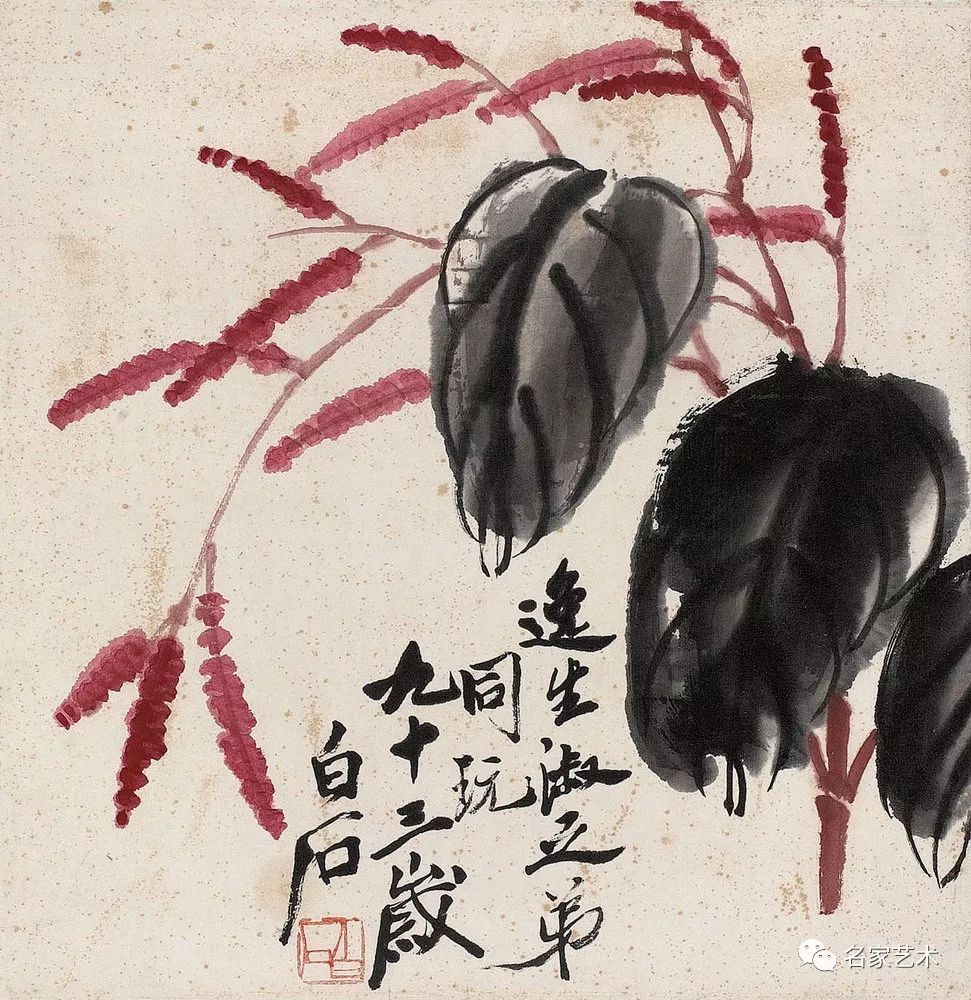 逸生淑立弟
同玩
九十三歲
白石
名家艺术